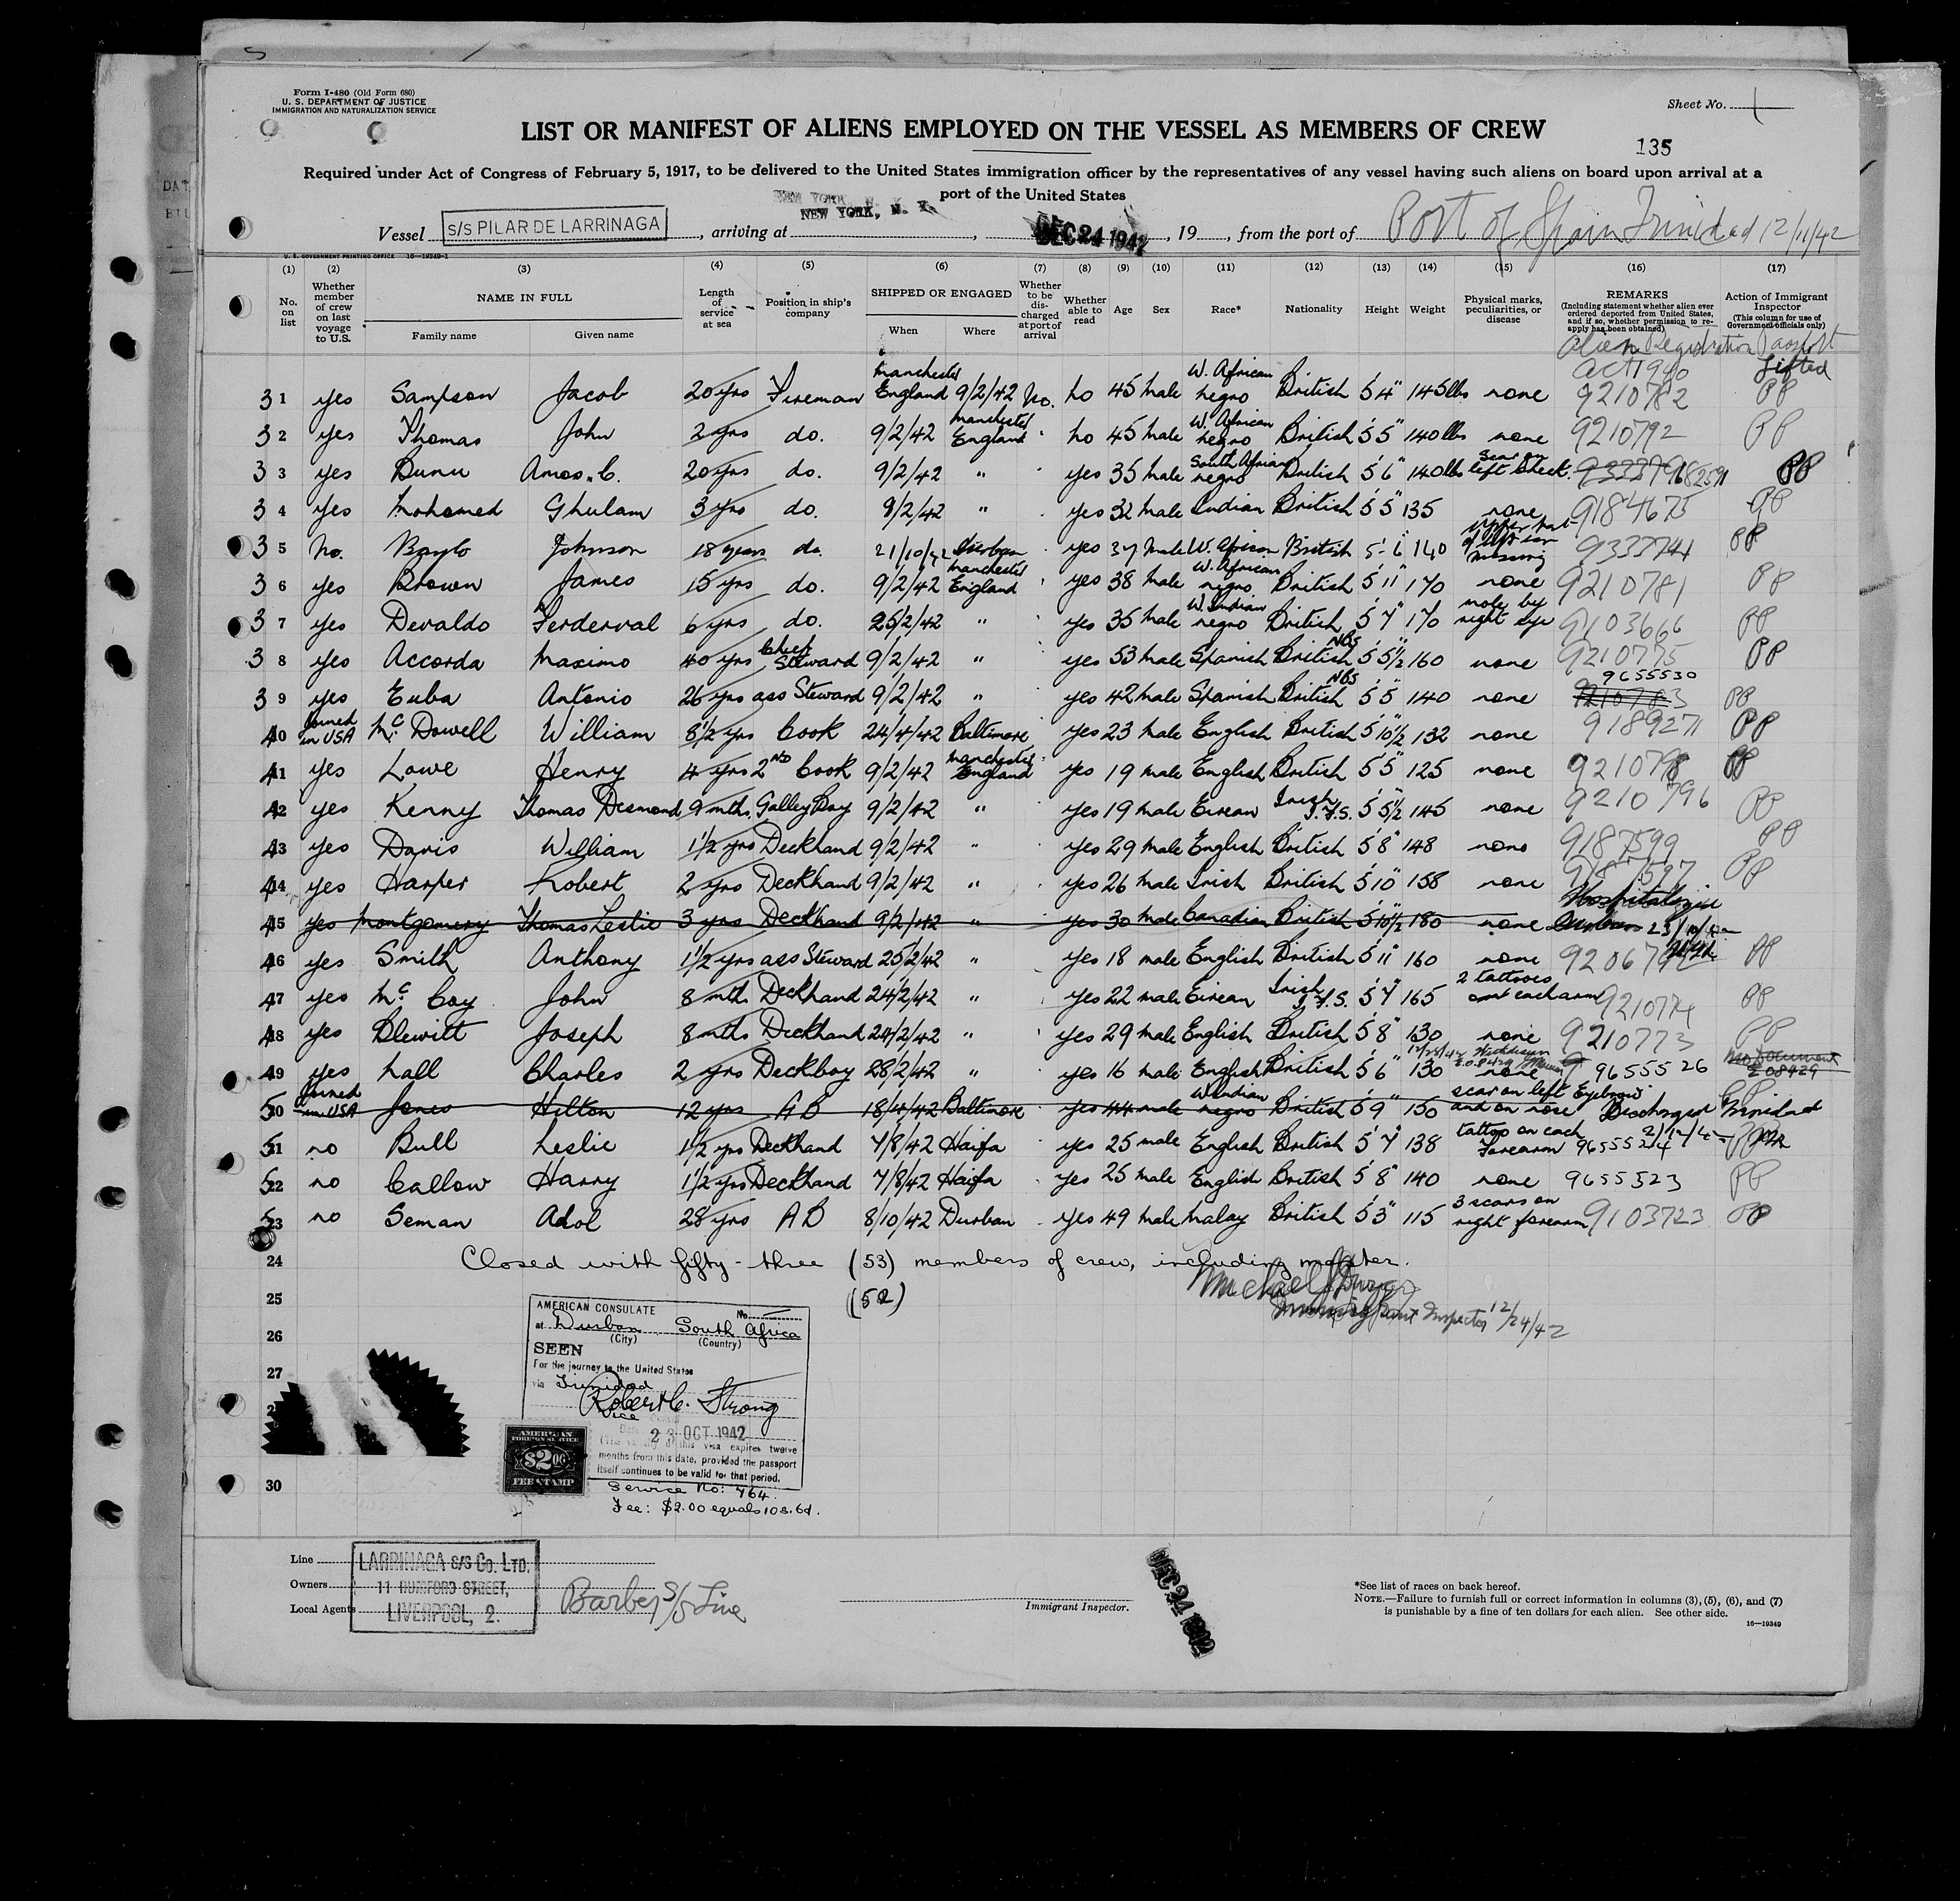 Form I-480 (Old Form 680)
U. S. DEPARTMENT OF JUSTICE
IMMIGRATION AND NATURALIZATION SERVICE
Sheet No. 1
LIST OR MANIFEST OF ALIENS EMPLOYED ON THE VESSEL AS MEMBERS OF CREW
135
Required under Act of Congress of February 5, 1917, to be delivered to the United States immigration officer by the representatives of any vessel having such aliens on board upon arrival at a
port of the United States
Vessel S/S PILAR DE LARRINAGA, arriving at NEW YORK, N. Y., DEC 24 1942, 19, from the port of Port of Spain Trinidad 12/11/42
U. S. GOVERNMENT PRINTING OFFICE 16-19349-1
(1) (2) (3) (4) (5) (6) (7) (8) (9) (10) (11) (12) (13) (14) (15) (16) (17)
No. on list
Whether member of crew on last voyage to U.S.
NAME IN FULL
Family name
Given name
Length of service at sea
Position in ship's company
SHIPPED OR ENGAGED
When
Where
Whether to be discharged at port of arrival
Whether able to read
Age
Sex
Race*
Nationality
Height
Weight
Physical marks, peculiarities, or disease
REMARKS
(Including statement whether alien ever ordered deported from United States, and if so, whether permission to re-apply has been obtained)
Action of Immigrant Inspector
(This column for use of Government officials only)
Alien Registration Act 1940
Passport Lifted
31 yes Sampson Jacob 20 yrs Fireman Manchester England 9/2/42 No. no 45 male W. African negro British 5'4" 145 lbs none 9210782 PP
32 yes Thomas John 2 yrs do. 9/2/42 Manchester England no 45 male W. African negro British 5'5" 140 lbs none 9210792 PP
33 yes Bunu Amos. C. 20 yrs do. 9/2/42 " yes 35 male South African negro British 5'6" 140 lbs scar on left cheek. PP
34 yes Mohamed Ghulam 3 yrs do. 9/2/42 " yes 32 male Indian British 5'5" 135 none 9184675 PP
35 No. Baylo Johnson 18 years do. 21/10/42 Durban yes 37 male W. African British 5'6" 140 missing 9333741 PP
36 yes Brown James 15 yrs do. 9/2/42 Manchester England yes 38 male W. African negro British 5'11" 170 none 9210781 PP
37 yes Devaldo Ferderval 6 yrs do. 25/2/42 " yes 35 male W. Indian negro British 5'7" 170 mole by right eye 9103666 PP
38 yes Accorda Maximo 40 yrs Chief Steward 9/2/42 " yes 53 male Spanish British NBS 5'5½" 160 none 9210775 PP
39 yes Euba Antonio 26 yrs ass Steward 9/2/42 " yes 42 male Spanish British NBS 5'5" 140 none 9210783 9655530 PP
40 joined in USA Mc. Dowell William 8½ yrs Cook 24/4/42 Baltimore yes 23 male English British 5'10½" 132 none 9189271 PP
41 yes Lowe Henry 4 yrs 2nd Cook 9/2/42 Manchester England yes 19 male English British 5'5" 125 none 9210798 PP
42 yes Kenny Thomas Desmond 9 mths. Galley Boy 9/2/42 " yes 19 male Eirean Irish I.F.S. 5'5½" 145 none 9210796 PP
43 yes Davis William 1½ yrs Deckhand 9/2/42 " yes 29 male English British 5'8" 148 none 9187599 PP
44 yes Harper Robert 2 yrs Deckhand 9/2/42 " yes 26 male Irish British 5'10" 158 none 9187597 PP
45 yes Montgomery Thomas Leslie 3 yrs Deckhand 9/2/42 " yes 30 male Canadian British 5'10½" 180 none Hospitalized Durban 23/10/42
46 yes Smith Anthony 1½ yrs ass Steward 25/2/42 " yes 18 male English British 5'11" 160 none PP
47 yes Mc. Coy John 8 mths Deckhand 24/2/42 " yes 22 male Eirean Irish I.F.S. 5'7" 165 2 tattooes on each arm 9210774 PP
48 yes Blewitt Joseph 8 mths Deckhand 24/2/42 " yes 29 male English British 5'8" 130 none 9210773 PP
49 yes Hall Charles 2 yrs Deckboy 28/2/42 " yes 16 male English British 5'6" 130 none 9655526 No Document E08429
50 joined in USA Jones Hilton 12 yrs AB 18/4/42 Baltimore yes 44 male W. Indian negro British 5'9" 150 scar on left Eyebrow and on nose Discharged Trinidad
51 no Bull Leslie 1½ yrs Deckhand 7/8/42 Haifa yes 25 male English British 5'7" 138 tattoo on each Forearm 9655524
52 no Callow Harry 1½ yrs Deckhand 7/8/42 Haifa yes 25 male English British 5'8" 140 none 9655523 PP
53 no Seman Adol 28 yrs AB 8/10/42 Durban yes 49 male Malay British 5'3" 115 3 scars on right forearm 9103723 PP
24 Closed with fifty-three (53) members of crew, including master.
25 (52)
Immigrant Inspector 12/24/42
26
27
30
AMERICAN CONSULATE No.
at Durban South Africa
(City) (Country)
SEEN
For the journey to the United States
via Trinidad
Robert C. Strong
Vice
23 OCT 1942
this visa expires twelve
months from this date, provided the passport
itself continues to be valid for that period.
AMERICAN
FOREIGN SERVICE
$2.00
FEE STAMP
Service No: 764
Fee: $2.00 equals 10s. 6d.
Line
Owners
Local Agents
LARRINAGA S/S CO. LTD.
11 RUMFORD STREET,
LIVERPOOL, 2.
Barber S/S Line
Immigrant Inspector.
DEC 24 1942
*See list of races on back hereof.
NOTE.—Failure to furnish full or correct information in columns (3), (5), (6), and (7)
is punishable by a fine of ten dollars for each alien. See other side.
16—19349